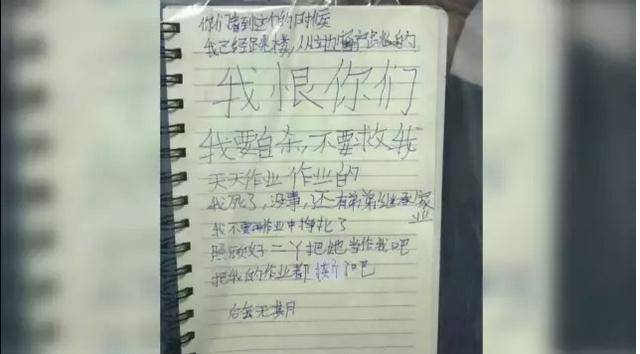 你们看到这个的时候
我已经跳楼,从窗户的
我恨你们
我要自杀,不要救我
天天作业作业的
我死了,没事,还有弟弟继承家业
我不要在作业中挣扎了
照顾好二丫把她当作我吧
把我的作业都撕了吧
后会无期